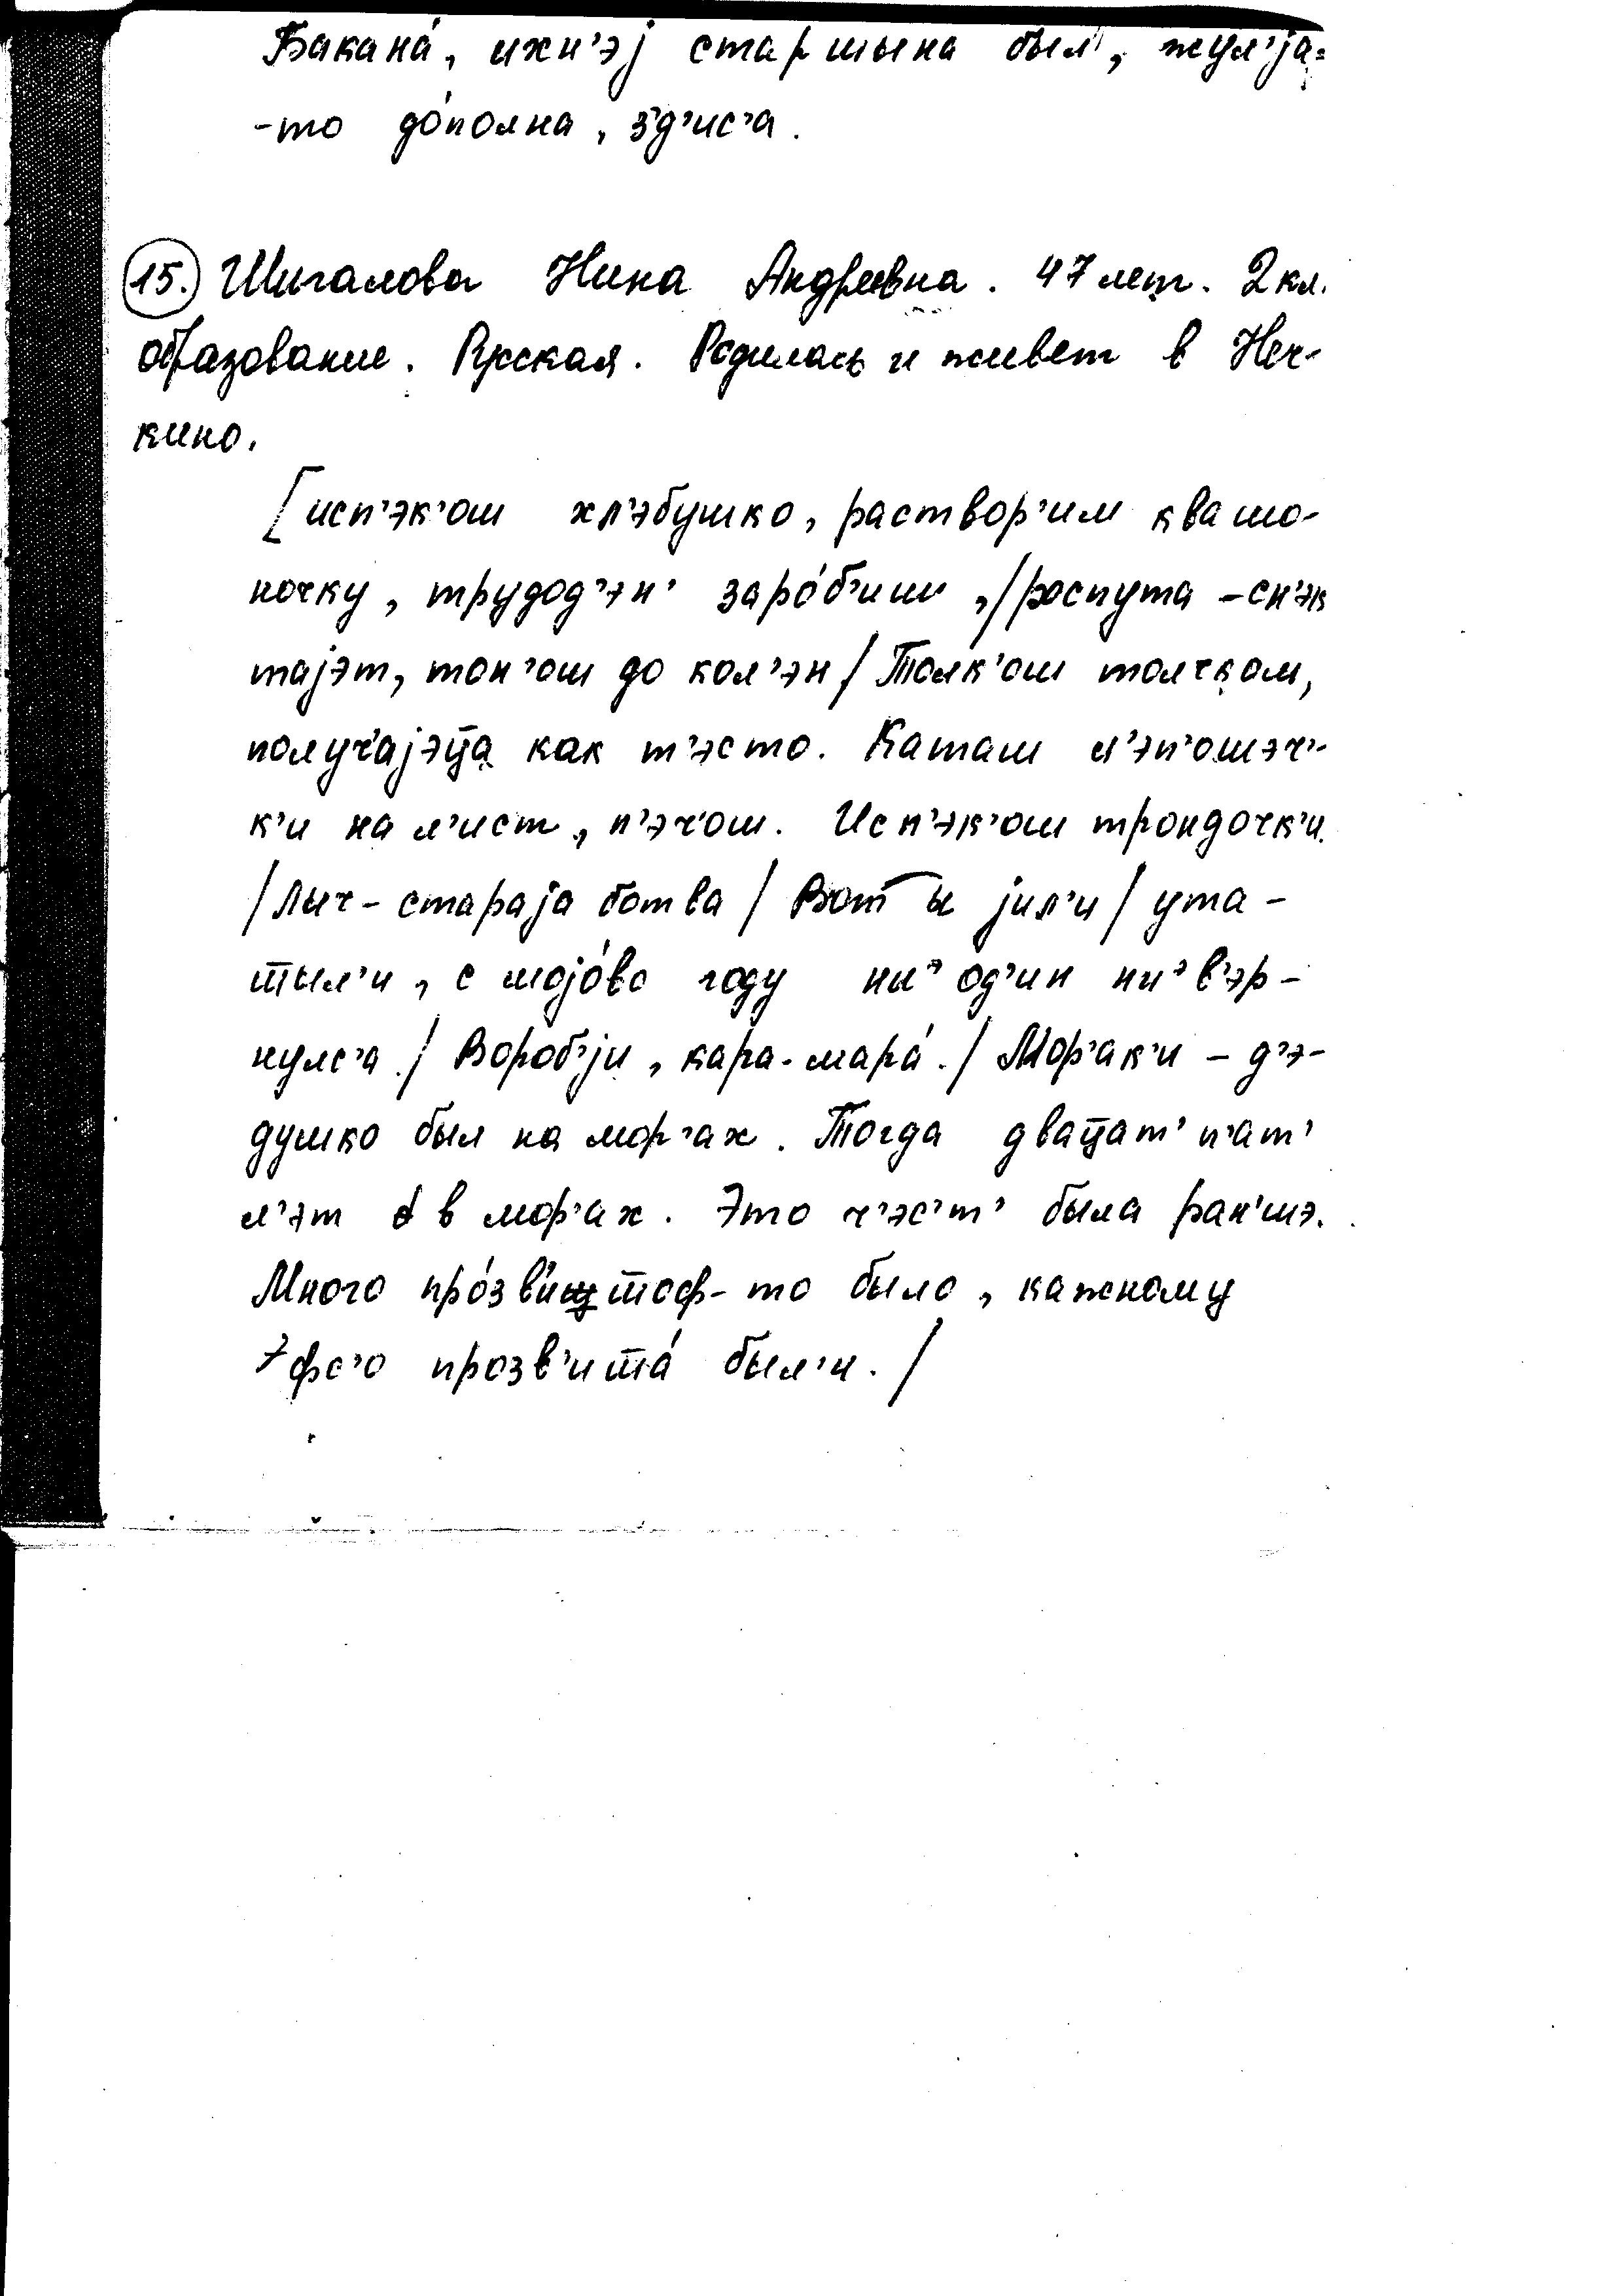 Бакана́, ихн'эj старшына был, жул'jа-
-то до́полна, з'д'ис'а.
15. Шигалова Нина Андреевна. 47 лет. 2 кл.
образование. Русская. Родилась и живет в Неч-
кино.
[исп'эк'ош хл'эбушко, раствор'им квашо-
ночку, трудод'эн' заро́б'иш, /роспута - сн'эк
таjэт, тон'ош до кол'эн / Толк'ош толчком,
получ'аjэца как т'эсто. Каташ л'эп'ошэч'-
к'и на л'ист, п'эч'ош. Исп'эк'ош трондочк'и.
/Лыч - стараjа ботва / Вот ы jил'и / ута-
шшыл'и, с моjо́во году ни од'ин ни в'эр-
нулс'а. / Вороб'jи, кара-мара́. / Мор'ак'и - д'э-
душко был на мор'ах. Тогда двацат' п'ат'
л'эт в мор'ах. Это ч'эс'т' была ран'шэ.
Много про́зв'ишшоф-то было, кажному
фс'о прозв'ишша́ был'и. /